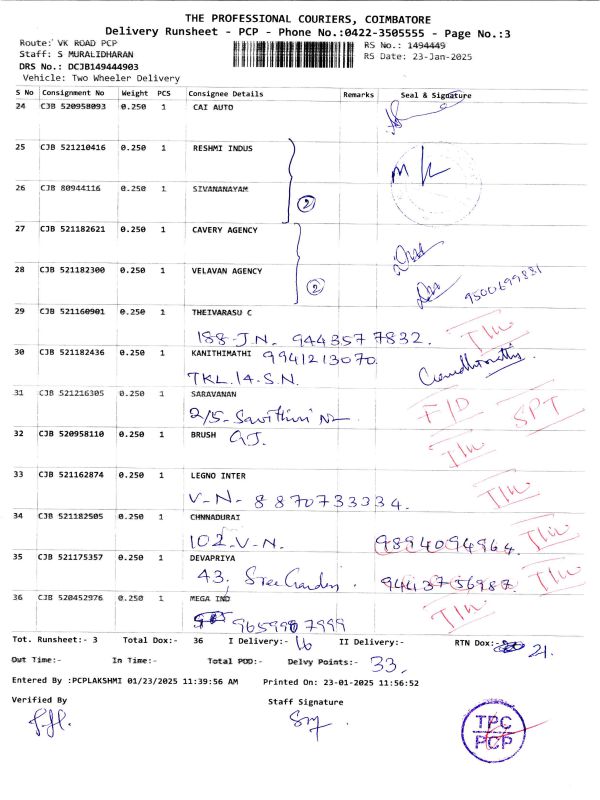 THE PROFESSIONAL COURIERS, COIMBATORE
Delivery Runsheet - PCP - Phone No.:0422-3505555 - Page No.:3
Route: VK ROAD PCP
Staff: S MURALIDHARAN
DRS No.: DCJB149444903
Vehicle: Two Wheeler Delivery
RS No.: 1494449
RS Date: 23-Jan-2025
S No Consignment No Weight PCS Consignee Details Remarks Seal & Signature
24 CJB 520958093 0.250 1 CAI AUTO
25 CJB 521210416 0.250 1 RESHMI INDUS
26 CJB 80944116 0.250 1 SIVANANAYAM
2
27 CJB 521182621 0.250 1 CAVERY AGENCY
28 CJB 521182300 0.250 1 VELAVAN AGENCY
2 9500699881
29 CJB 521160901 0.250 1 THEIVARASU C
188-J.N. 9443577832.
30 CJB 521182436 0.250 1 KANITHIMATHI 9941213070
TKL.14.S.N.
31 CJB 521216305 0.250 1 SARAVANAN
2/5- F/D SPT
32 CJB 520958110 0.250 1 BRUSH G.J.
33 CJB 521162874 0.250 1 LEGNO INTER
V-N- 8870733334.
34 CJB 521182505 0.250 1 CHNNADURAI
102-V-N. 9894094964.
35 CJB 521175357 0.250 1 DEVAPRIYA
43, Sree Garden. 9443756987
36 CJB 520452976 0.250 1 MEGA IND
9659987999
Tot. Runsheet:- 3 Total Dox:- 36 I Delivery:- 16 II Delivery:- RTN Dox:- 21.
Out Time:- In Time:- Total POD:- Delvy Points:- 33,
Entered By :PCPLAKSHMI 01/23/2025 11:39:56 AM Printed On: 23-01-2025 11:56:52
Verified By Staff Signature
TPC
PCP